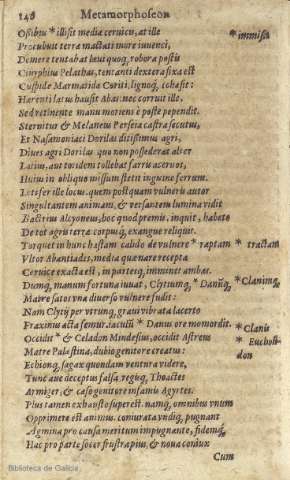 148 Metamorphoseon
Ossibus * illisit mediæ ceruicis, at ille * immissa
Procubuit terræ mactati more iuuenci,
Demere tentabat læui quoq; robora postis
Cinyphius Pelathas, tentanti dextera fixa est
Cuspide Marmaridæ Coriti, lignoq; cohæsit:
Hærenti latus hausit Abas: nec corruit ille,
Sed retinente manu moriens è poste pependit.
Sternitur & Melaneus Perseia castra secutus,
Et Nasamoniaci Dorilas ditissimus agri,
Diues agri Dorilas quo non possederat alter
Latius, aut totidem tollebat farris aceruos,
Huius in obliquo missum stetit inguine ferrum.
Letifer ille locus. quem postquam vulneris autor
Singultantem animam, & versantem lumina vidit
Bactrius Alcyoneus, hoc quod premis, inquit, habeto
De tot agris terræ corpusq; exangue reliquit.
Torquet in hunc hastam calido de vulnere * raptam * tractam
Vltor Abantiades, media quæ nare recepta
Ceruice exacta est, in parteisq; imminet ambas.
Dumq; manum fortuna iuuat, Clytumq; * Danumq; * Clanimq;
Matre satos vna diuerso vulnere fudit:
Nam Clytij per vtrunq; graui vibrata lacerto
Fraxinus acta femur. iaculum * Danus ore momordit. * Clanis
Occidit * & Celadon Mendesius, occidit Astreus * Eucheli-
Matre Palæstina, dubio genitore creatus: don
Ethionq; sagax quondam ventura videre,
Tunc aue deceptus falsa, regisq; Thoactes
Armiger, & cæso genitore infamis Agyrtes.
Plus tamen exhausto superest. namq; omnibus vnum
Opprimere est animus. coniurata vndiq; pugnant
Agmina pro causa meritum impugnante, fidemq;
Hac pro parte socer frustra pius, & noua coniux
Cum
Biblioteca de Galicia